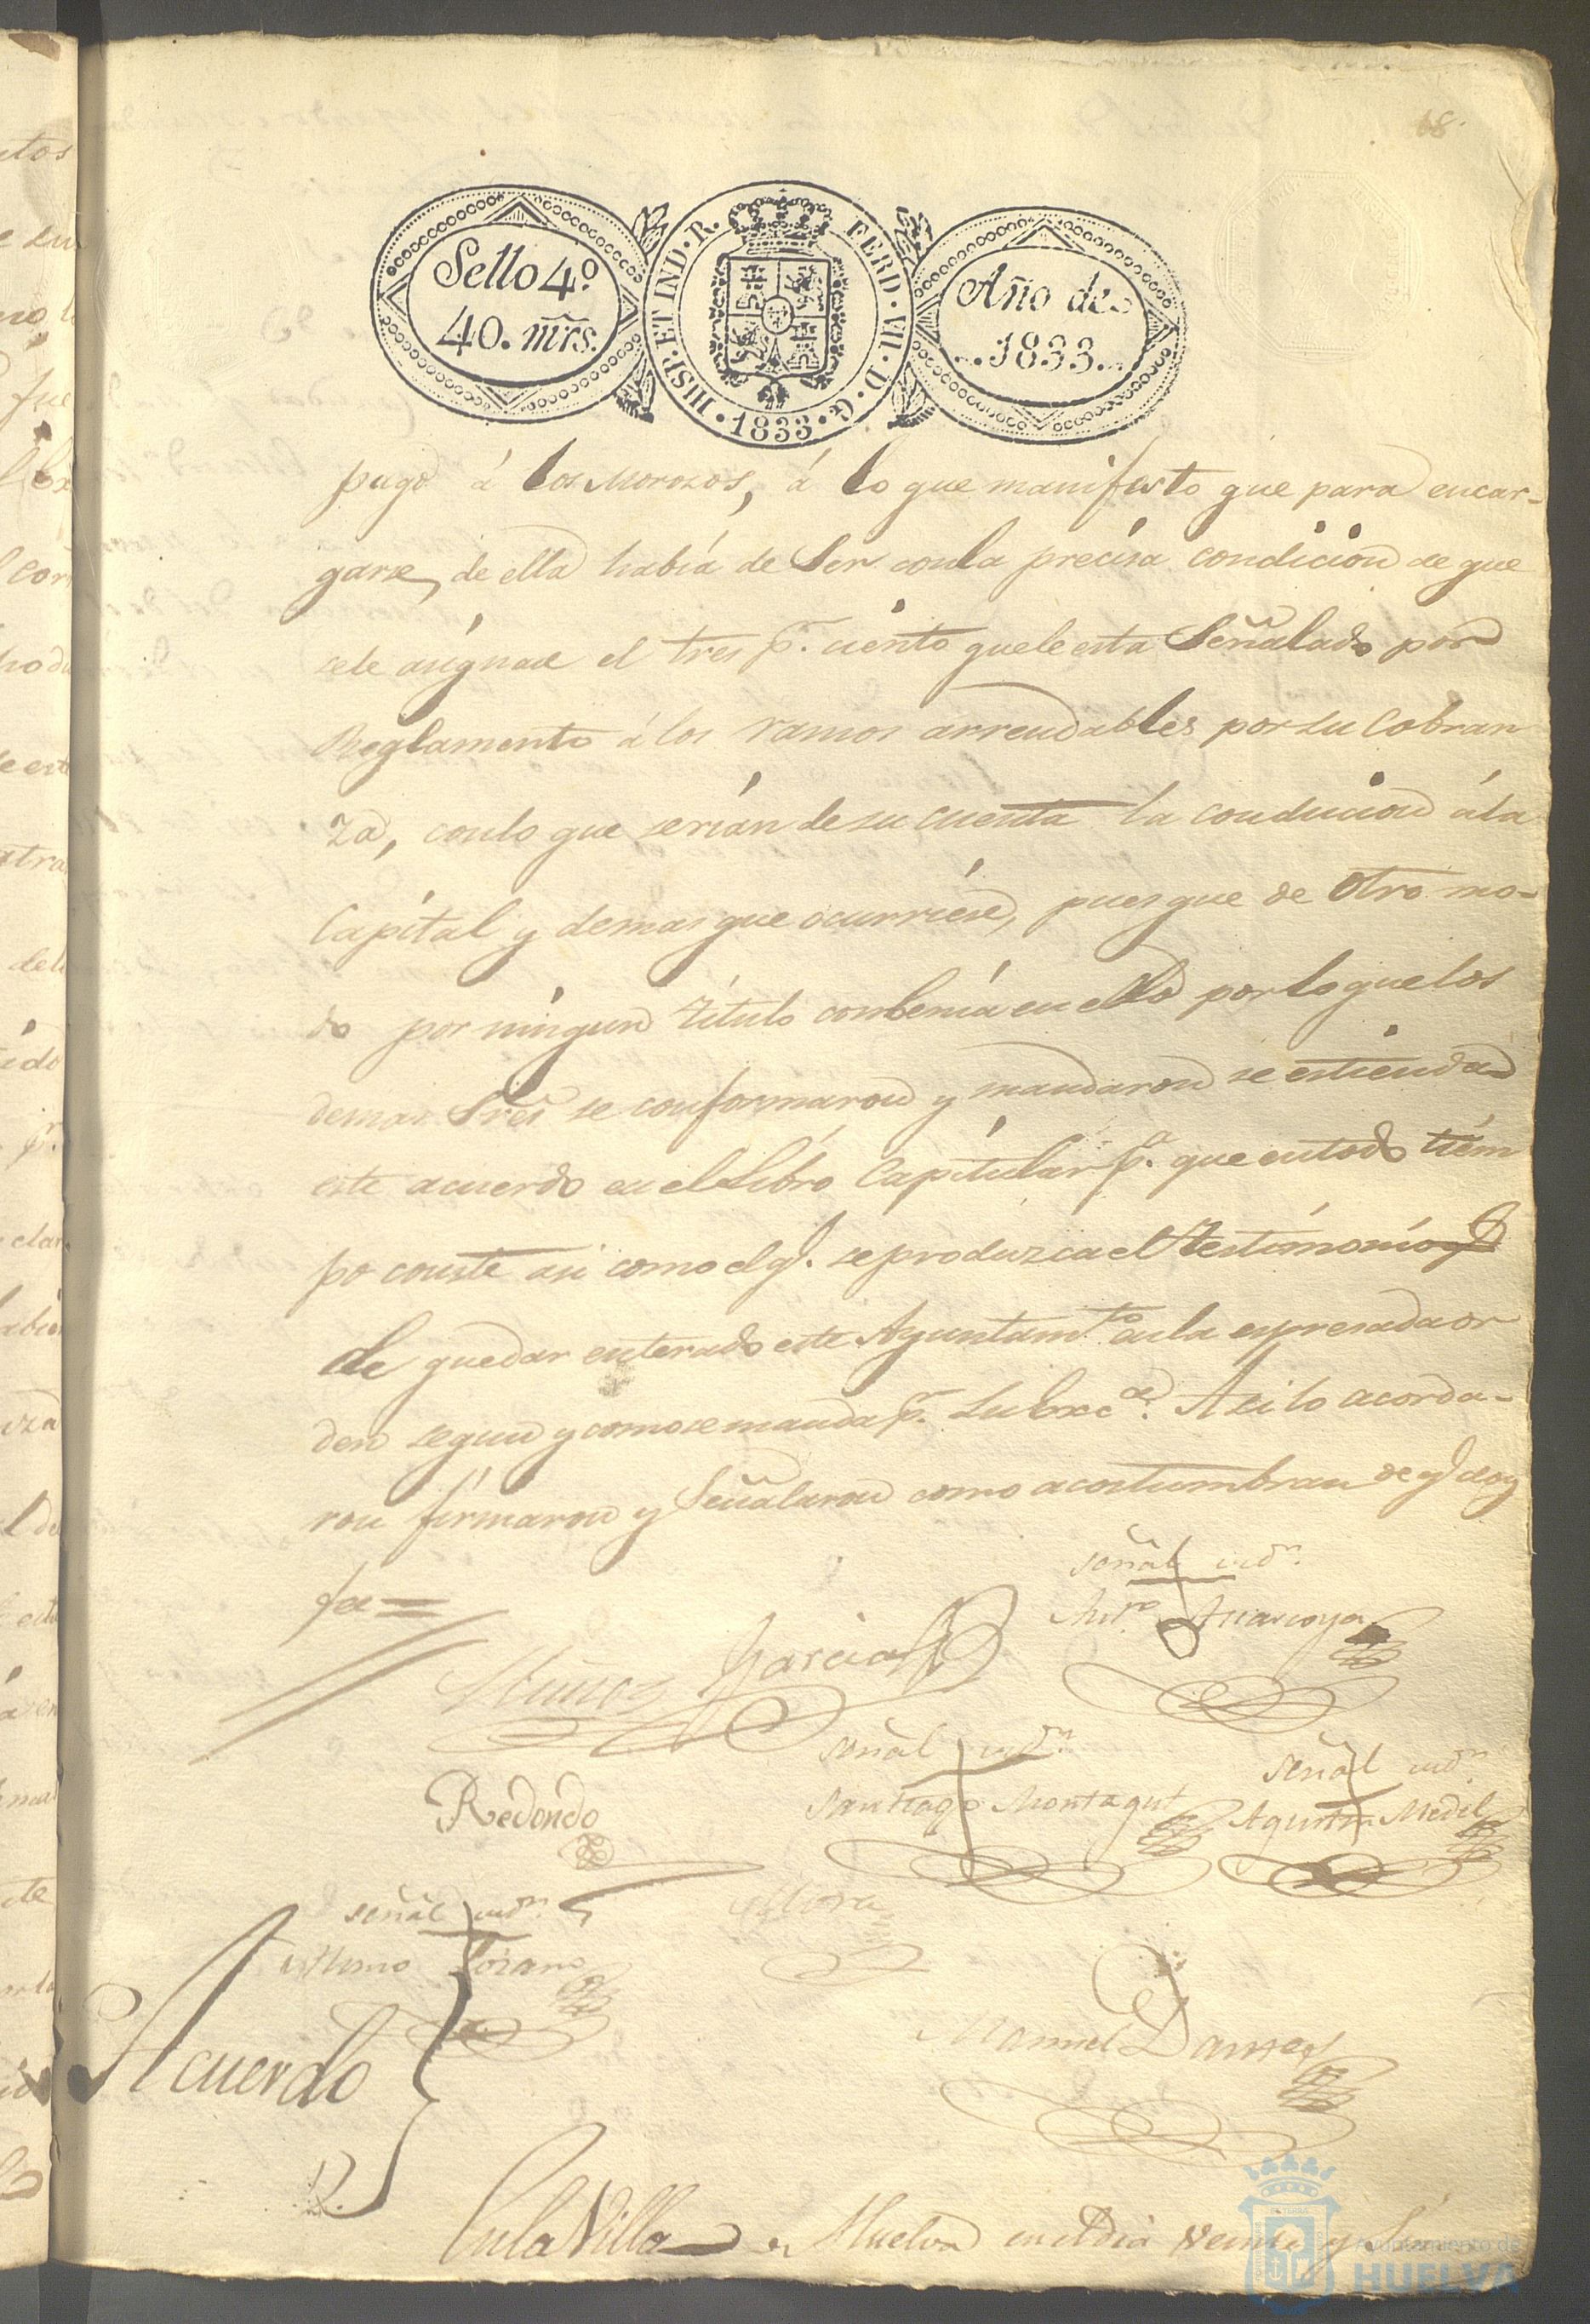 68.
Sello 4º
40. mrs.
HISP. ET IND. R. FERD. VII. D. G. 1833.
Año de
1833
pago á los Morozos, á lo que manifesto que para encar-
garse de ella había de Ser conla precisa condicion de que
sele asignase el tres pr. ciento quele esta Señalado por
Reglamento á los ramos arrendables por su Cobran
za, conlo que serían de su cuenta la conducion ála
Capital y demas que ocurriese, pues que de otro mo-
do por ningun título conbenía en ello por lo que los
demas Sres se conformaron y mandaron se estienda
este acuerdo en el Libro Capitular pa. que entodo tiem
po conste asi como el q. se produzca el testimonio
de quedar enterado este Ayuntamto. enla espresada or
den segun y como se manda pr. Su Exca. Asi lo acorda-
ron firmaron y Señalaron como acostumbran de q doy
fee =
Señal
Muñoz Garcia
Señal
Señal
Redondo
Santiago Montagut
Agustin Medel
Señal
Mora
Lozano
Manuel
Acuerdo
En la Villa de Huelva en el dia veinte y
Ayuntamiento de
HUELVA